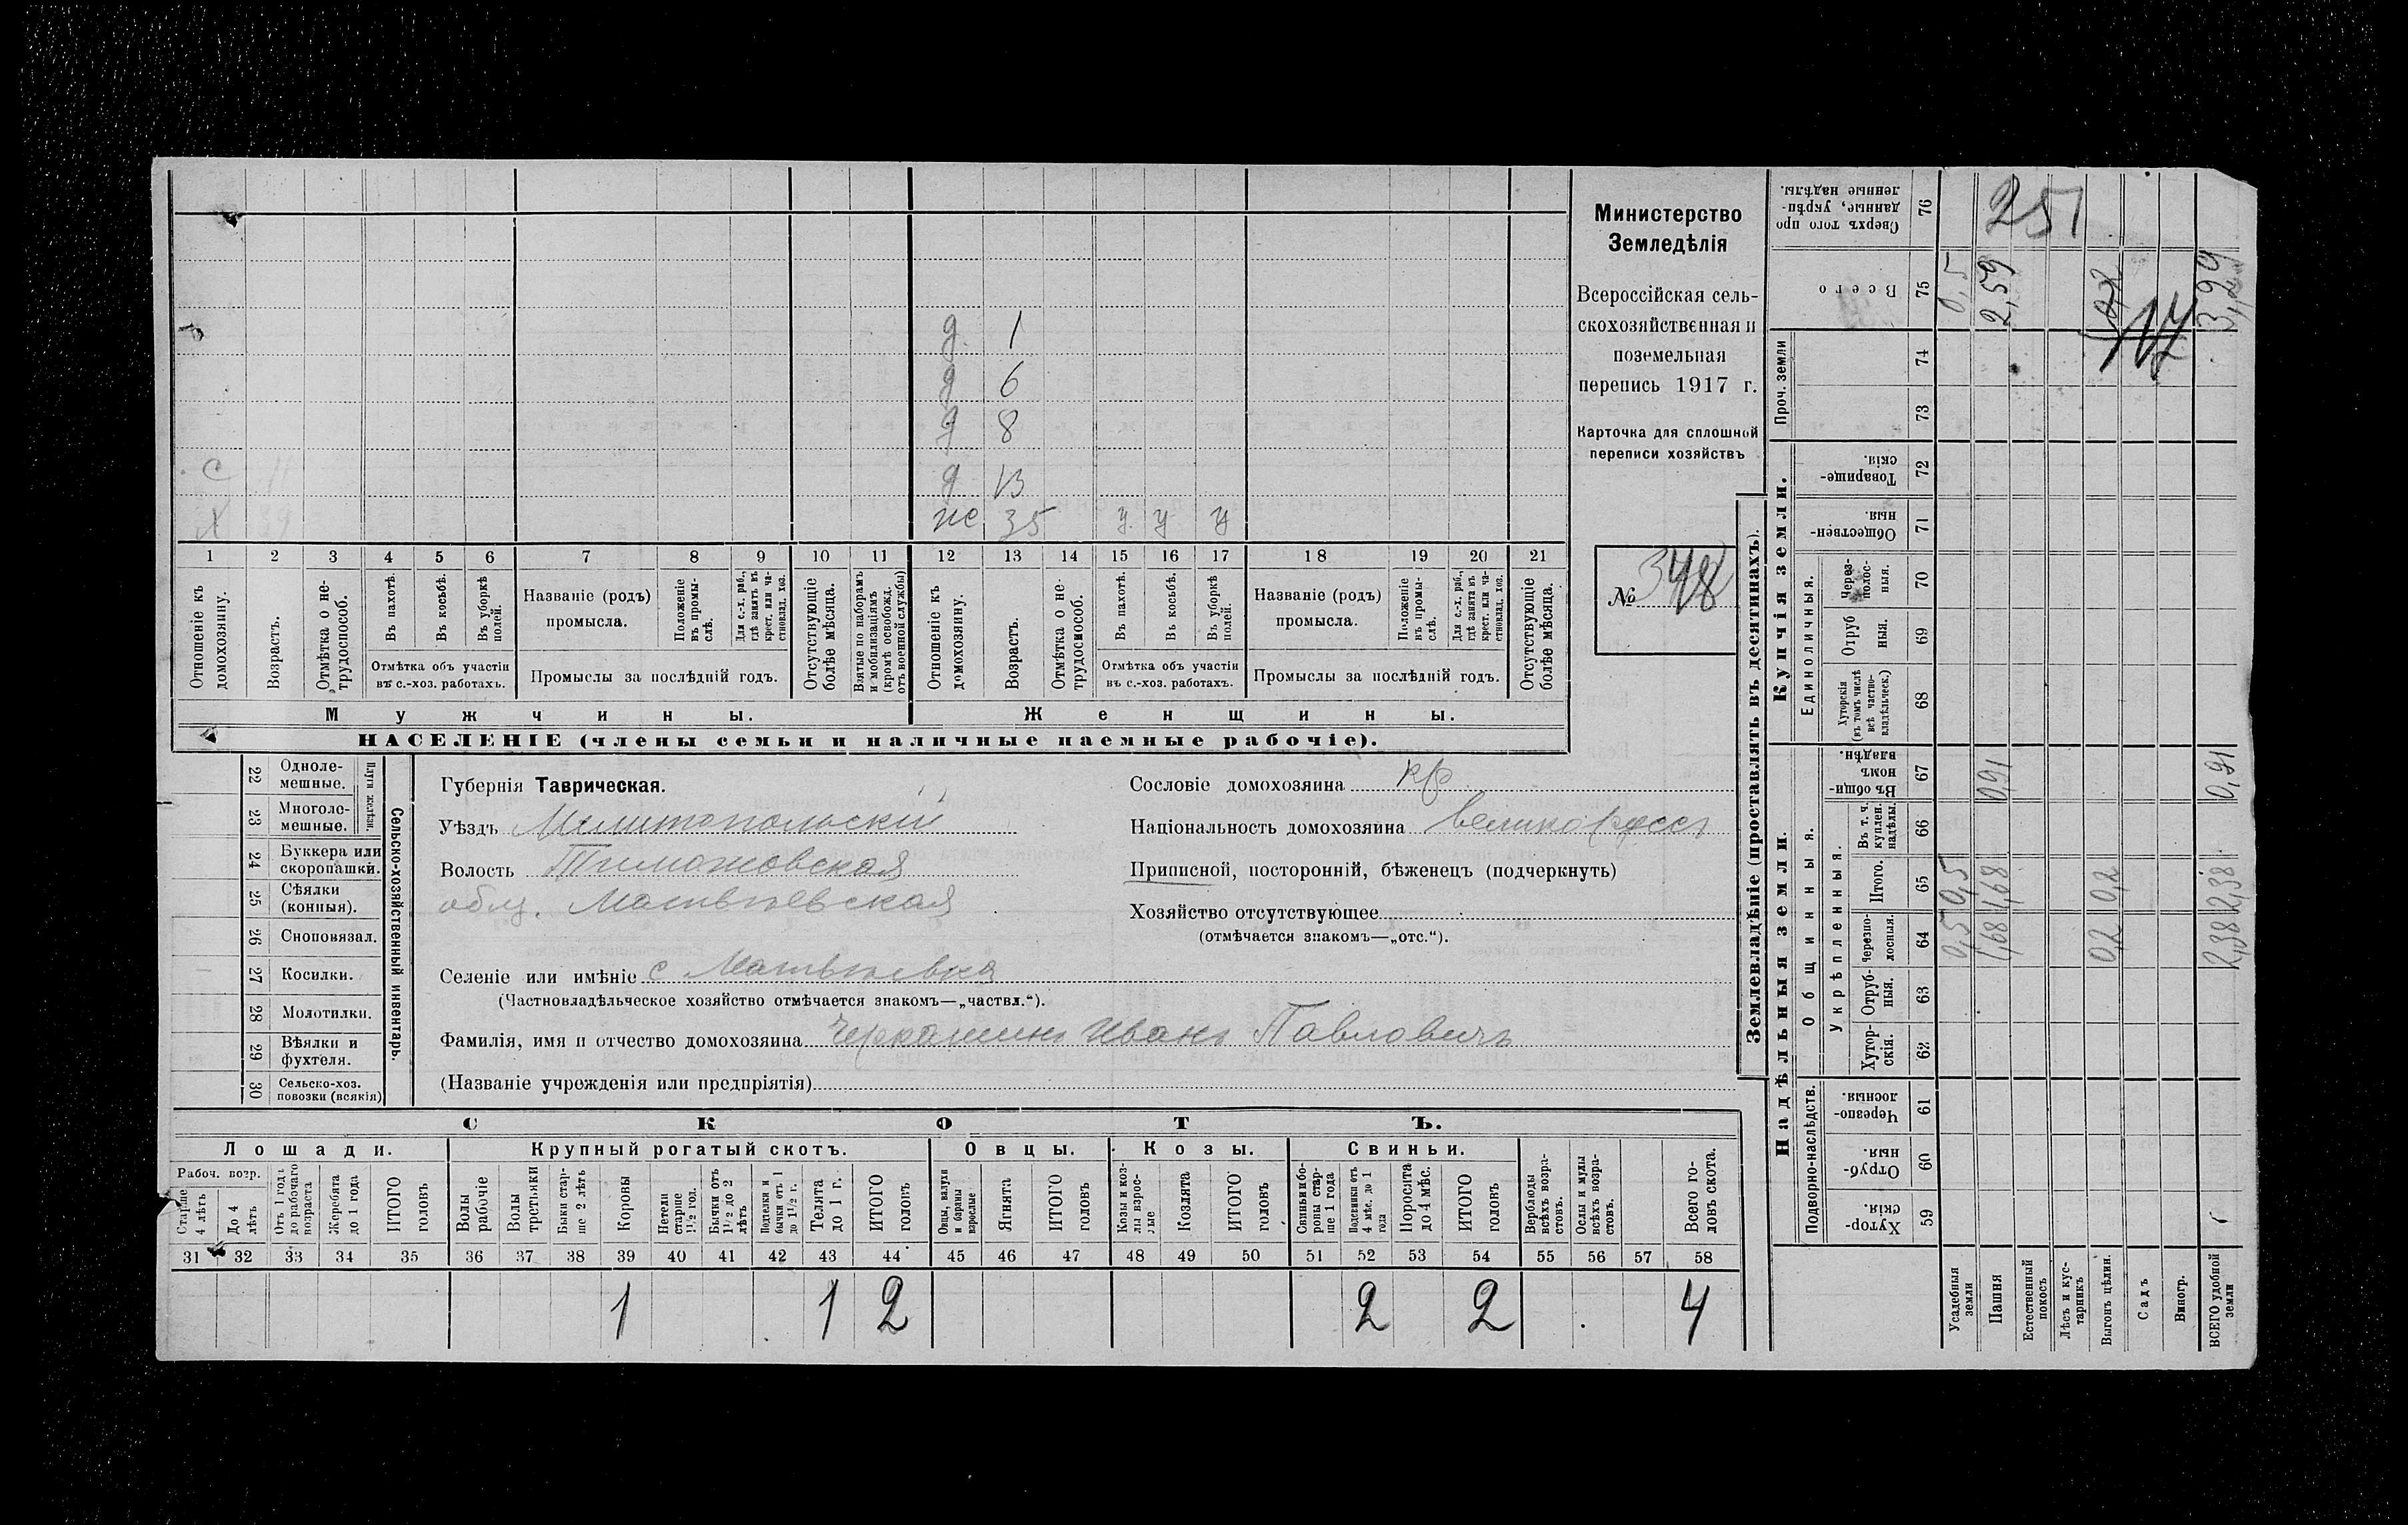 д 1
д 6
д 8
с 11 д 13
Х 39 же 35 у у у
1 2 3 4 5 6 7 8 9 10 11 12 13 14 15 16 17 18 19 20 21
Отношеніе къ домохозяину.
Возрастъ.
Отмѣтка о не-трудоспособ.
Въ пахотѣ.
Въ косьбѣ.
Въ уборкѣ полей.
Отмѣтка объ участіи въ с.-хоз. работахъ.
Названіе (родъ) промысла.
Положеніе въ промы-слѣ.
Для с.-х. раб., гдѣ занятъ въ крест. или ча-стновлад. хоз.
Промыслы за послѣдній годъ.
Отсутствующіе болѣе мѣсяца.
Взятые по наборамъ и мобилизаціямъ (кромѣ освобожд. отъ военной службы)
Отношеніе къ домохозяину.
Возрастъ.
Отмѣтка о не-трудоспособ.
Въ пахотѣ.
Въ косьбѣ.
Въ уборкѣ полей.
Отмѣтка объ участіи въ с.-хоз. работахъ.
Названіе (родъ) промысла.
Положеніе въ промы-слѣ.
Для с.-х. раб., гдѣ занята въ крест. или ча-стновлад. хоз.
Промыслы за послѣдній годъ.
Отсутствующіе болѣе мѣсяца.
Мужчины. Женщины.
НАСЕЛЕНІЕ (члены семьи и наличные наемные рабочіе).
Министерство
Земледѣлія
Всероссійская сель-
скохозяйственная и
поземельная
перепись 1917 г.
Карточка для сплошной
переписи хозяйствъ
№ 348
22 Одноле-мешные.
23 Многоле-мешные.
Плуги желѣзн.
24 Буккера или скоропашки.
25 Сѣялки (конныя).
26 Сноповязал.
27 Косилки.
28 Молотилки.
29 Вѣялки и фухтеля.
30 Сельско-хоз. повозки (всякія)
Сельско-хозяйственный инвентарь.
Губернія Таврическая.
Уѣздъ Мелитопольскій
Волость Тимошовская
общ. Матвѣевская
Селеніе или имѣніе с Матвѣевка
(Частновладѣльческое хозяйство отмѣчается знакомъ—„частвл.“).
Фамилія, имя и отчество домохозяина Черкашинъ Иванъ Павловичъ
(Названіе учрежденія или предпріятія)
Сословіе домохозяина кр
Національность домохозяина великороссъ
Приписной, посторонній, бѣженецъ (подчеркнуть)
Хозяйство отсутствующее
(отмѣчается знакомъ—„отс.“).
СКОТЪ.
Лошади. Крупный рогатый скотъ. Овцы. Козы. Свиньи.
Рабоч. возр.
Старше 4 лѣтъ
До 4 лѣтъ
Отъ 1 года до рабочаго возраста
Жеребята до 1 года
ИТОГО головъ
Волы рабочіе
Волы третьяки
Быки стар-ше 2 лѣтъ
Коровы
Нетели старше 1½ год.
Бычки отъ 1½ до 2 лѣтъ
Подтелки и бычки отъ 1 до 1½ г.
Телята до 1 г.
ИТОГО головъ
Овцы, валухи и бараны взрослые
Ягнята
ИТОГО головъ
Козы и коз-лы взрос-лые
Козлята
ИТОГО головъ
Свиньи и бо-ровы стар-ше 1 года
Подсвинки отъ 4 мѣс. до 1 года
Поросята до 4 мѣс.
ИТОГО головъ
Верблюды всѣхъ возра-стовъ.
Ослы и мулы всѣхъ возра-стовъ.
Всего го-ловъ скота.
31 32 33 34 35 36 37 38 39 40 41 42 43 44 45 46 47 48 49 50 51 52 53 54 55 56 57 58
1 1 2 2 2 4
Землевладѣніе (проставлять въ десятинахъ).
Надѣльныя земли. Купчія земли.
Подворно-наслѣдств.
Общинныя.
Укрѣпленныя.
Единоличныя.
Проч. земли
59 Хутор-скія.
60 Отруб-ныя.
61 Черезпо-лосныя.
62 Хутор-скія.
63 Отруб-ныя.
64 Черезпо-лосныя.
65 Итого.
66 Въ т. ч. куплен. надѣлы.
67 Въ общин-номъ владѣн.
68 Хуторскія (въ томъ числѣ всѣ частно-владѣльческ.)
69 Отруб-ныя.
70 Через-полос-ныя.
71 Обществен-ныя.
72 Товарище-скія.
73
74
75 Всего
76 Сверхъ того про-данные, укрѣп-ленные надѣлы.
Усадебныя земли 0,5 0,5 0,5
Пашня 1,68 1,68 0,91 2,59 251
Естественный покосъ
Лѣсъ и кус-тарникъ
Выгонъ цѣлин. 0,2 0,2 0,2
Садъ
Виногр.
ВСЕГО удобной земли 2,38 2,38 0,91 3,29